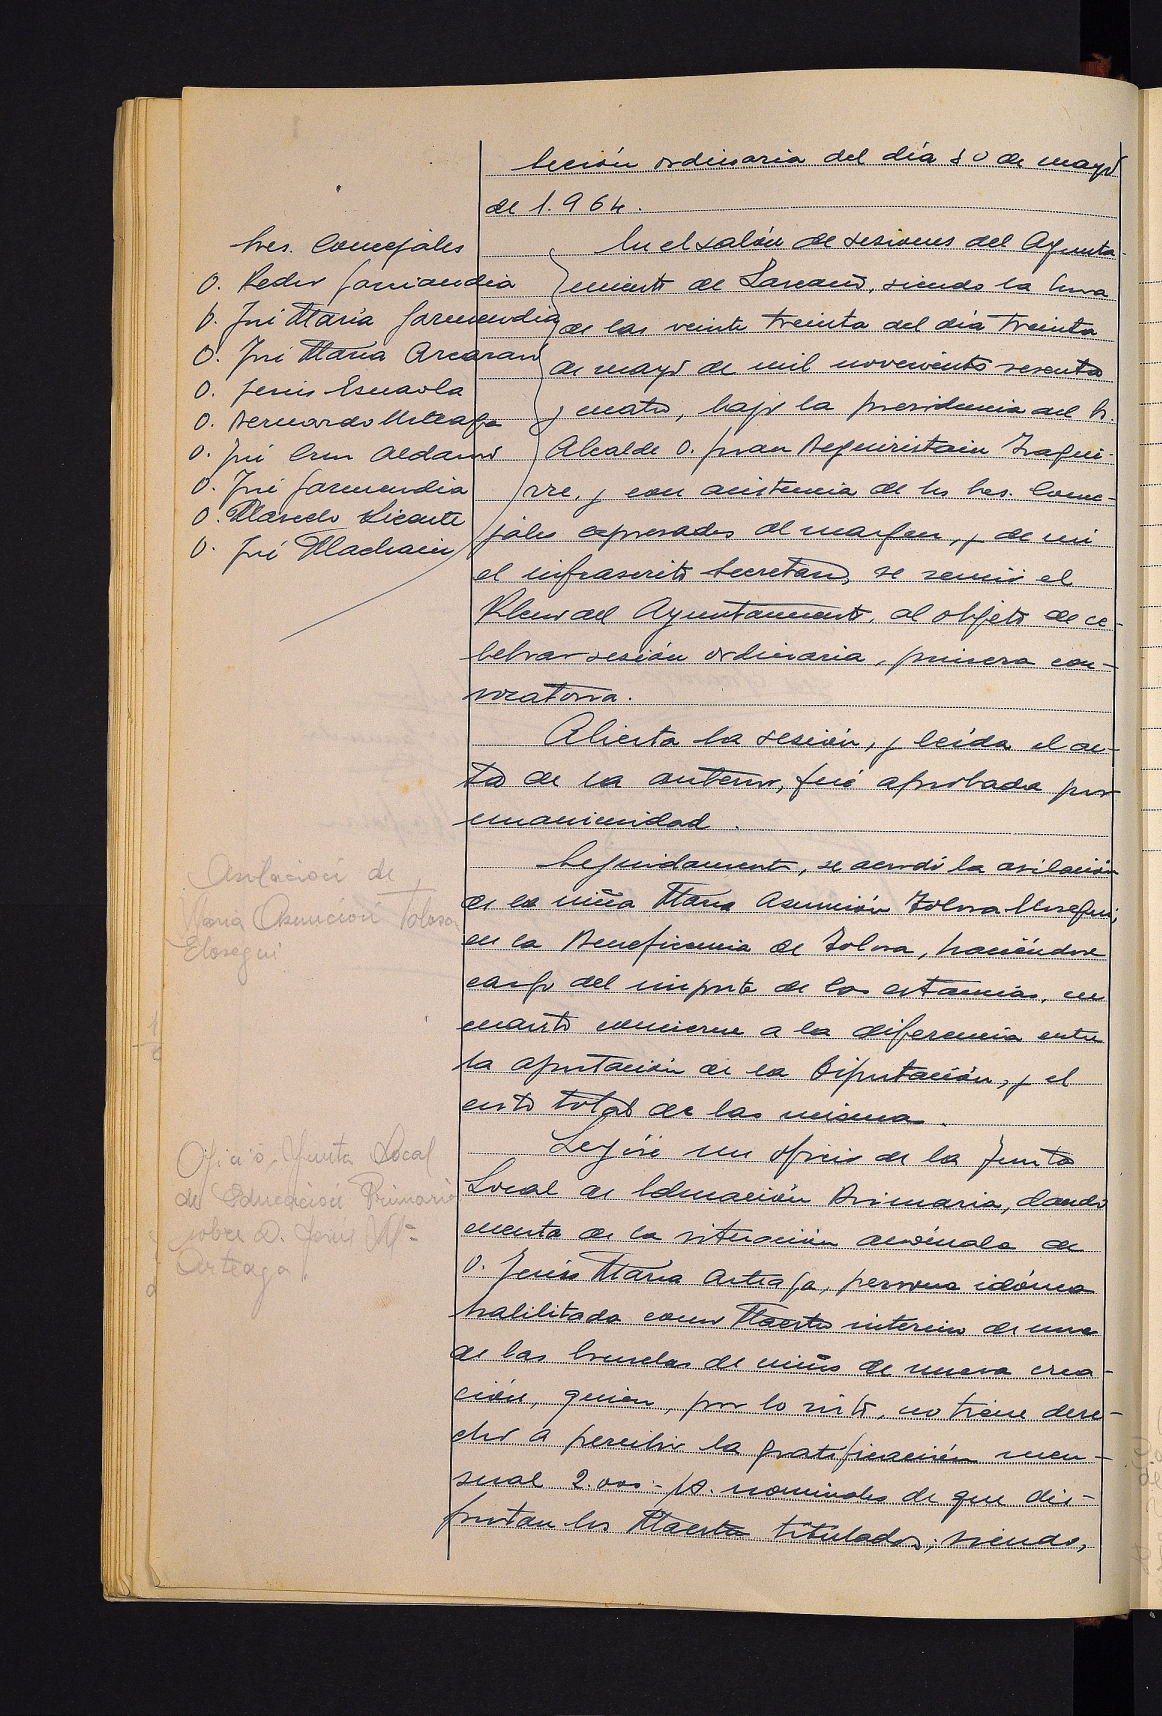 Sesión ordinaria del día 30 de mayo
de 1.964.
Sres. Concejales
D. Pedro Garciandia
D. José María Garmendia
D. José María Ascarau
D. Jesús Esnaola
D. Bernardo Urteaga
D. José Cruz Aldanur
D. José Garmendia
D. Marcelo Licante
D. José Machain
En el salón de sesiones del Ayunta-
miento de Lazcano, siendo la hora
de las veinte treinta del día treinta
de mayo de mil novecientos sesenta
y cuatro, bajo la presidencia del Sr.
Alcalde D. Juan Beguiristain Izagui-
rre, y con asistencia de los Sres. Conce-
jales expresados al margen, y de mi
el infrascrito Secretario, se reunió el
Pleno del Ayuntamiento, al objeto de ce-
lebrar sesión ordinaria, primera con-
vocatoria.
Abierta la sesión, y leída el ac-
ta de la anterior, fué aprobada por
unanimidad.
Asilación de
Maria Asunción Tolosa
Elosegui
Seguidamente, se acordó la asilación
de la niña María Asunción Tolosa Elosegui,
en la Beneficencia de Tolosa, haciéndose
cargo del importe de las estancias, en
cuanto concierne a la diferencia entre
la aportación de la Diputación, y el
costo total de las mismas.
Oficio, Junta Local
de Educación Primaria
sobre D. Jesús Mª
Arteaga
Leyóse un oficio de la Junta
Local de Educación Primaria, dando
cuenta de la situación anómala de
D. Jesús María Arteaga, persona idónea
habilitada como Maestro interino de una
de las Escuelas de niños de nueva crea-
ción, quien, por lo visto, no tiene dere-
cho a percibir la gratificación men-
sual 2.000.- pts. nominales de que dis-
frutan los Maestros titulados; siendo,